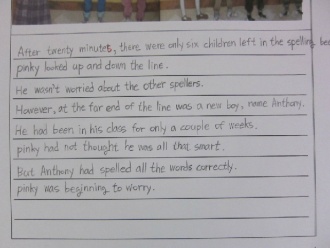 After twenty minutes, there were only six children left in the spelling bee
pinky looked up and down the line.
He wasn't worried about the other spellers.
However, at the far end of the line was a new boy, name Anthony.
He had been in his class for only a couple of weeks.
pinky had not thought he was all that smart.
But Anthony had spelled all the words correctly.
pinky was beginning to worry.